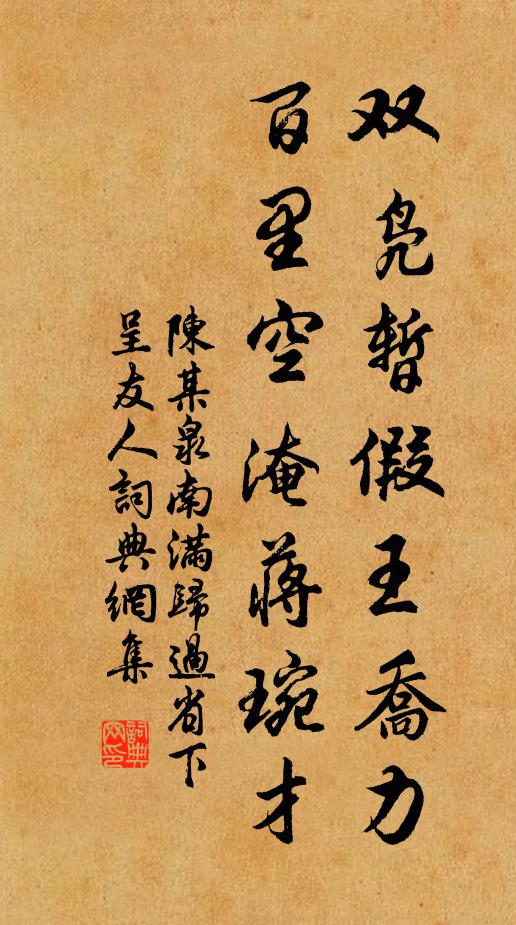 双凫暂假王喬力
百里空淹蒋琬才
陳某泉南滿歸過省下
呈友人詞典網集
詞典
网印